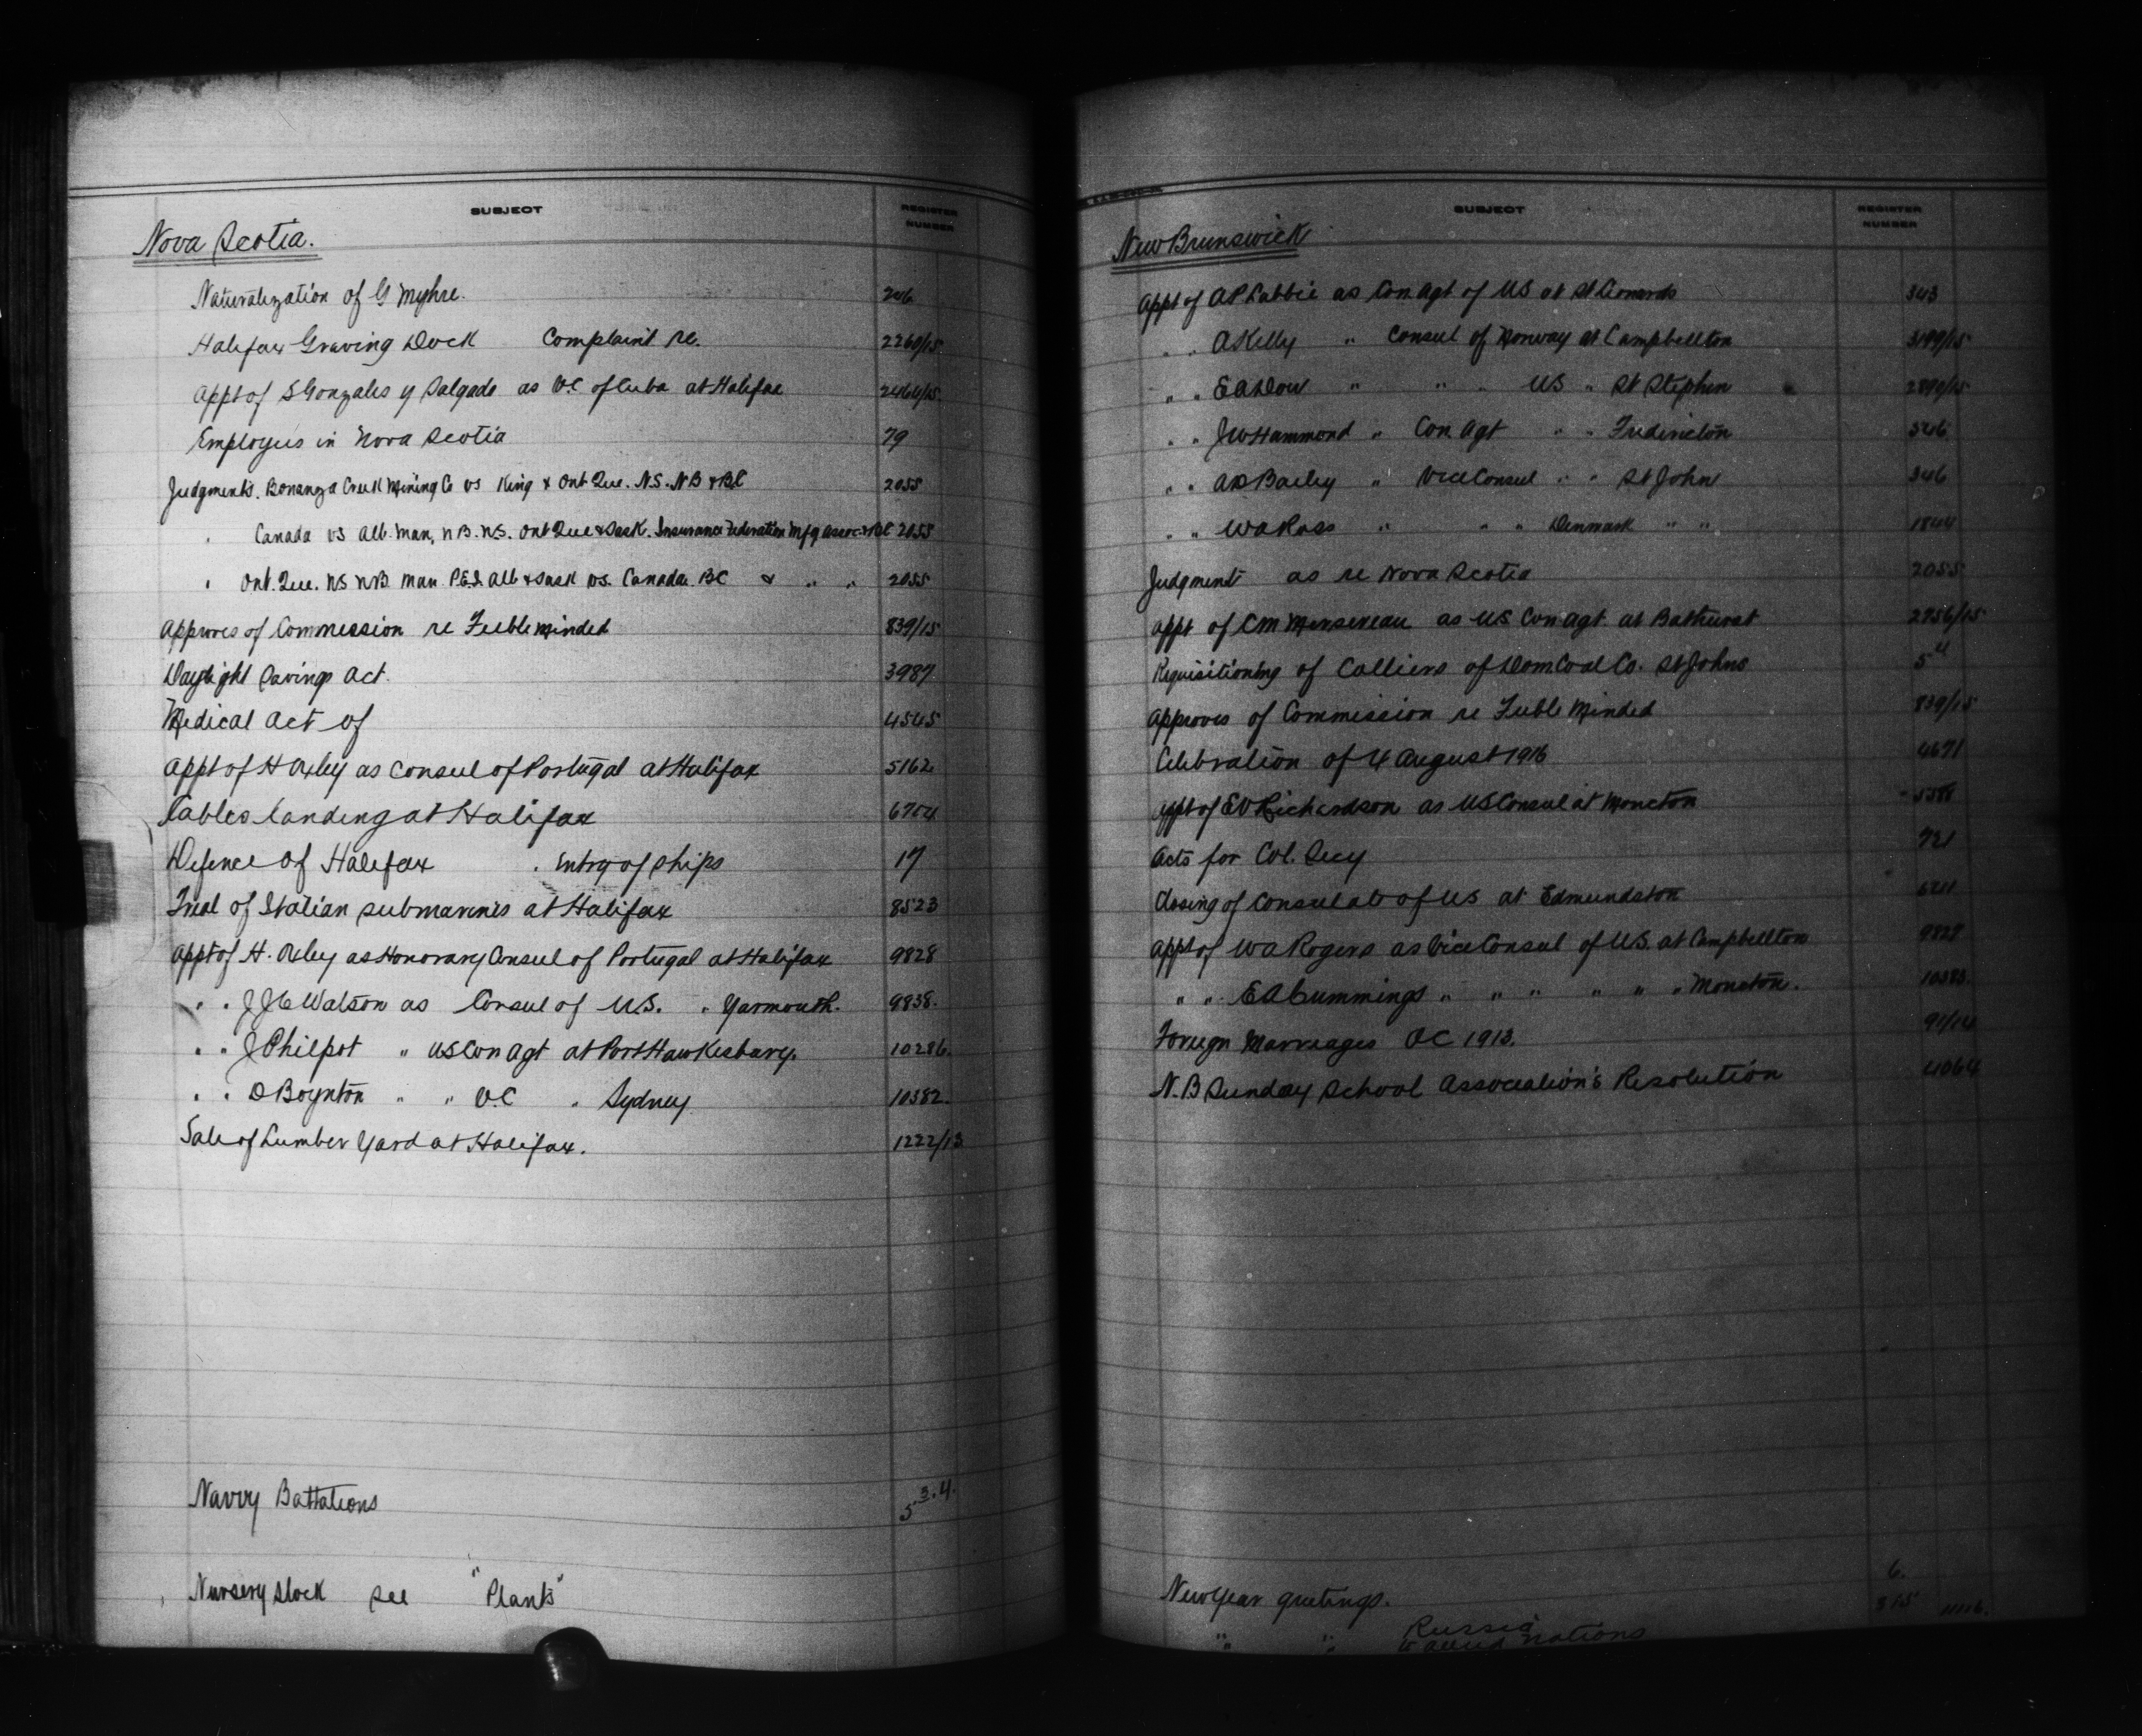 SUBJECT REGISTER NUMBER
Nova Scotia.
Naturalization of G Myhre. 206
Halifax Graving Dock Complaint re. 2260/15
Appt of S Gonzales y Salgado as V.C of Cuba at Halifax 2464/15
Employees in Nova Scotia 79
Judgments. Bonanza Creek Mining Co vs King & Ont Que. N.S. N B & BC 2055
" Canada vs Alb. Man, N B. N.S. Ont Que & Sask. Insurance Federation Mfg Assoc. & BC 2055
" Ont. Que. NS NB Man P.E.I. Alb & Sask vs. Canada. BC & " " 2055
Approves of Commission re Feeble Minded 839/15
Daylight Savings Act. 3987
Medical Act of 4545
Appt of H Oxley as Consul of Portugal at Halifax 5162
Cables landing at Halifax 6704
Defence of Halifax . Entry of Ships 17
Trial of Italian submarines at Halifax 8523
Appt of H. Oxley as Honorary Consul of Portugal at Halifax 9828
" " J J C Watson as Consul of U.S. " Yarmouth. 9838.
" " J Philpot " US Con Agt at Port Hawkesbury. 10286.
" " D Boynton " " V.C " Sydney 10382.
Sale of Lumber Yard at Halifax. 1222/13
Navvy Battalions 5 3.4.
Nursery Stock see "Plants"
SUBJECT REGISTER NUMBER
New Brunswick
Appt of A P Labbie as Con Agt of US at St Leonards 343
" " A Kelly " Consul of Norway at Campbellton 3199/15
" " E A Dow " " " US " St Stephen 2890/15
" " J W Hammond " Con Agt " " Fredericton 346
" " A D Bailey " Vice Consul " " St John 346
" " W A Ross " " " Denmark " " 1844
Judgments as re Nova Scotia 2055
Appt of C M Mersereau as US Con Agt at Bathurst 2756/15
Requisitioning of Colliers of Dom Coal Co. St Johns 5 4
Approves of Commission re Feeble Minded 839/15
Celebration of 4 August 1916 4671
Appt of E V Richardson as US Consul at Moncton 5388
Acts for Col. Secy 721
Closing of Consulate of US at Edmundston
Appt of W A Rogers as Vice Consul of U.S. at Campbellton 9829
" " E A Cummings " " " " " " Moncton. 10383.
Foreign Marriages OC 1913. 91/14
N. B Sunday School Association's Resolution 4064
New Year greetings. 6.
" " Russia
Allied Nations